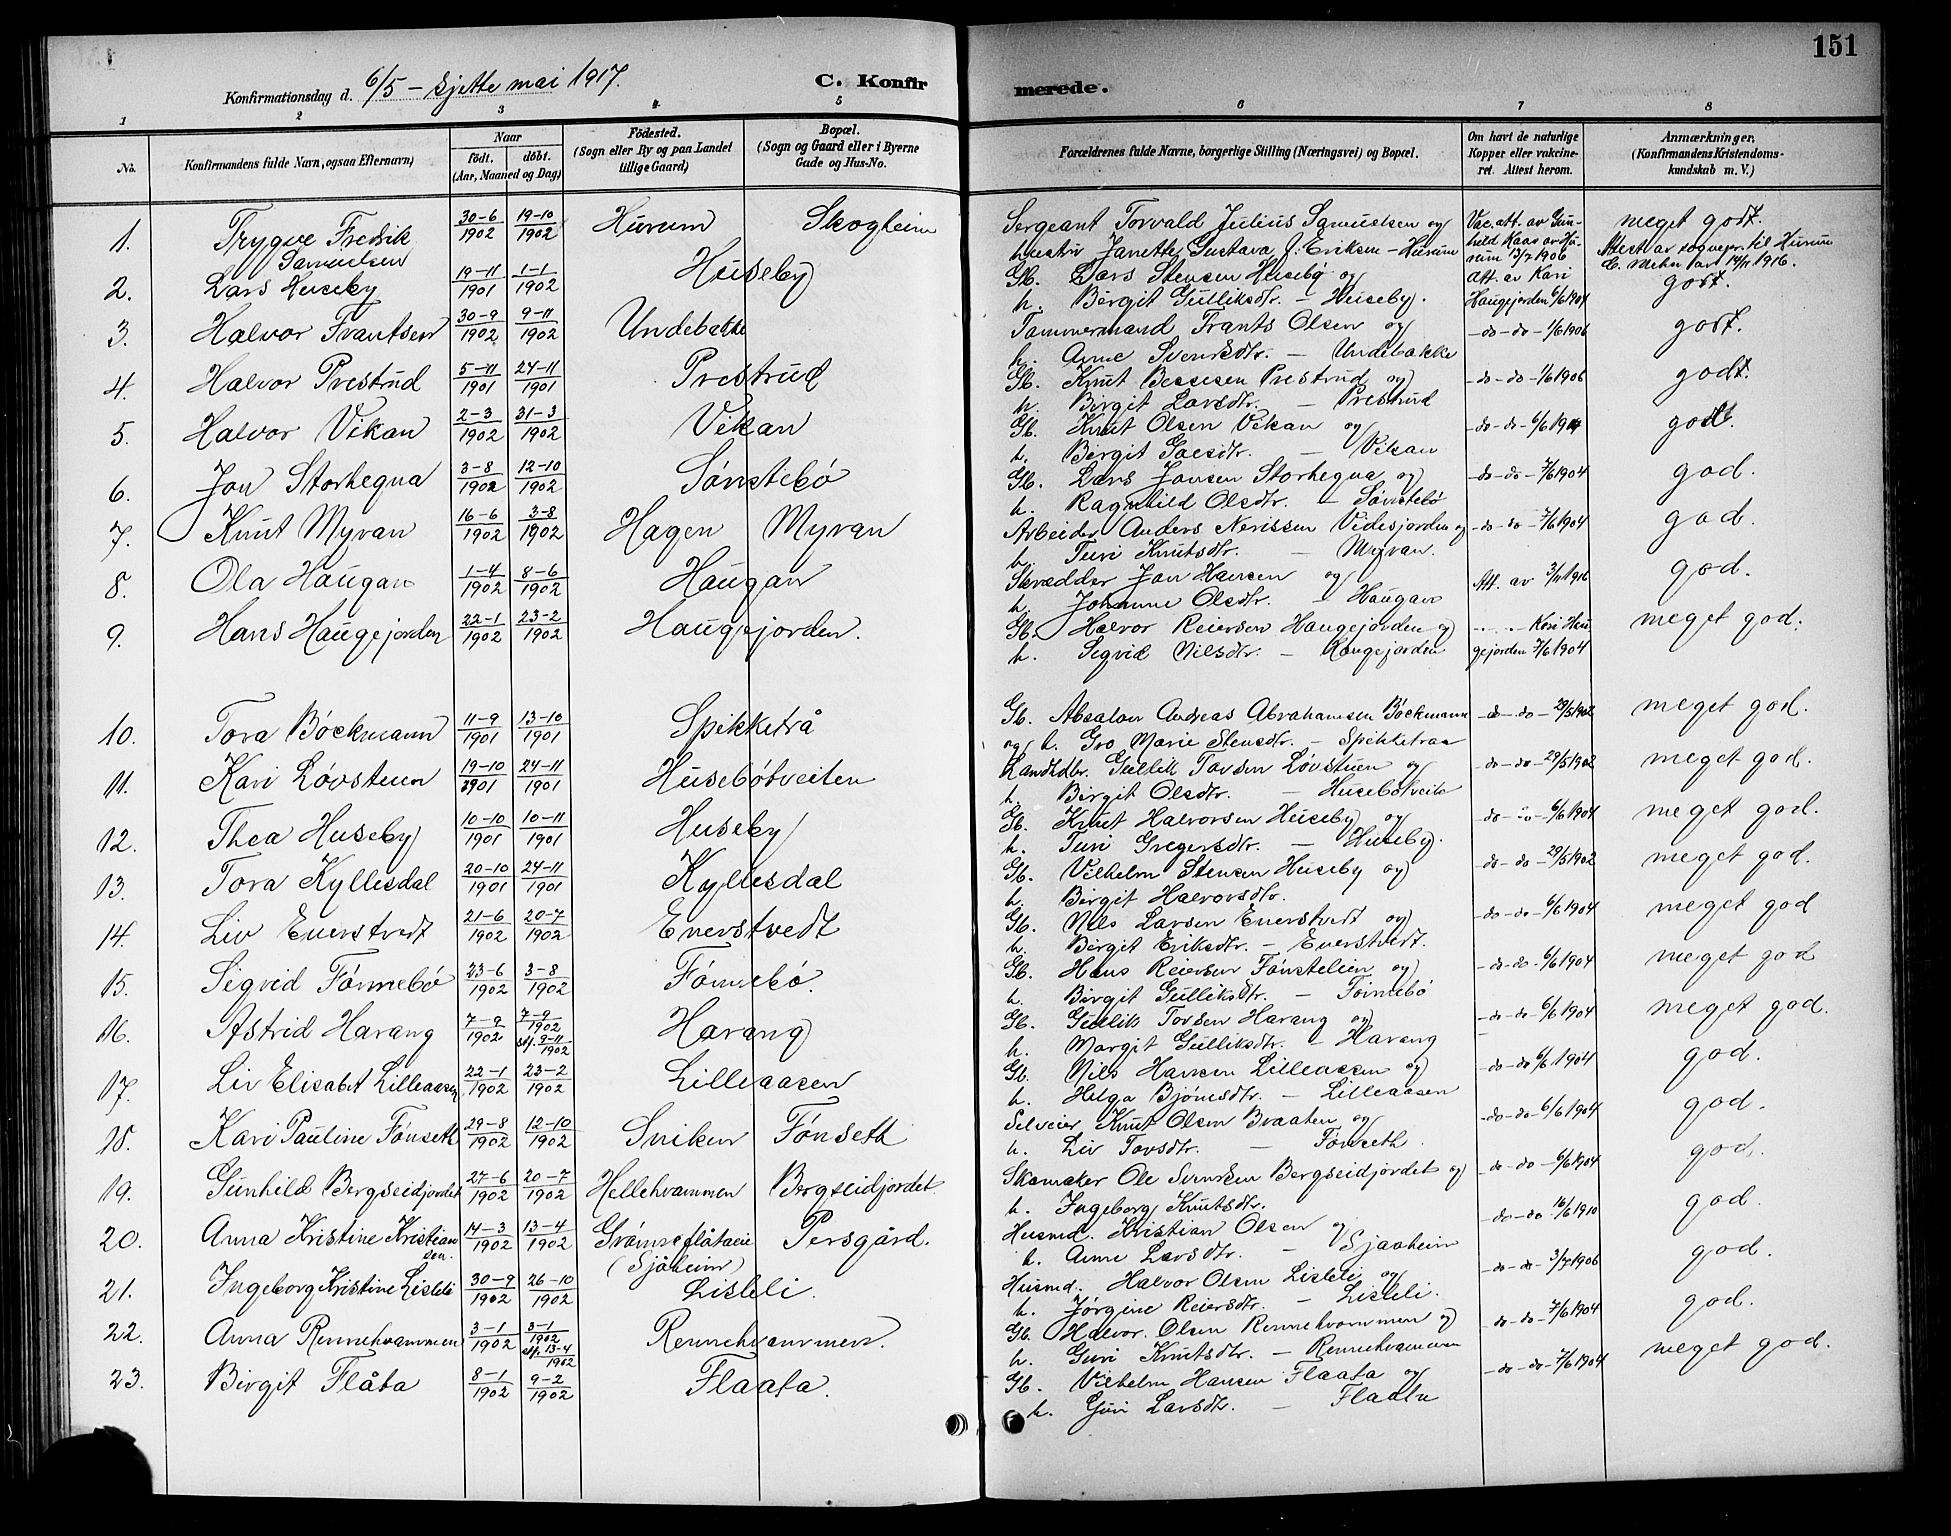 151
Konfirmationsdag d. 6/5 – sjette mai 1917.
C. Konfirmerede.
1 2 3 4 5 6 7 8
No.
Konfirmandens fulde Navn, ogsaa Efternavn)
Naar
födt. döbt.
(Aar, Maaned og Dag)
Födested.
(Sogn eller By og paa Landet
tillige Gaard)
Bopæl.
(Sogn og Gaard eller i Byerne
Gade og Hus-No.
Forældrenes fulde Navne, borgerlige Stilling (Næringsvei) og Bopæl.
Om havt de naturlige
Kopper eller vakcine-
ret. Attest herom.
Anmærkninger,
(Konfirmandens Kristendoms-
kundskab m. V.)
1. Trygve Fredrik Samuelsen 30-6 1902 19-10 1902 Hurum Skogheim
Sergeant Torvald Julius Samuelsen og
hustru Janette Gustava f. Eriksen – Hurum
Vac. att. av Gun-
hild Kaas av Hu-
rum 13/7 1906
meget godt.
Attest av sognepr. til Hurum
14/11 1916.
2. Lars Huseby 19-11 1901 1-1 1902 Huseby
Gb. Lars Stensen Husebø og
h. Birgit Gulliksdtr. – Huseby.
Att. av Kari
Haugejorden 6/6 1904
godt.
3. Halvor Frantsen 30-9 1902 9-11 1902 Undebakke
Tømmermand Frants Olsen og
h. Anne Svensdtr. – Undebakke
-do-do- 1/6 1906
godt.
4. Halvor Prestrud 5-11 1901 24-11 1901 Prestrud
Gb. Knut Bessesen Prestrud og
h. Birgit Larsdtr. – Prestrud
-do-do- 1/6 1906
godt.
5. Halvor Vikan 2-3 1902 31-3 1902 Vikan
Gb. Knut Olsen Vikan og
h. Birgit Goesdtr. – Vikan
-do-do- 6/6 1904
godt.
6. Jon Storhegna 3-8 1902 12-10 1902 Sønstebø
Gb. Lars Jonsen Storhegna og
h. Ragnhild Olsdtr. – Sønstebø
-do-do- 7/6 1904
god.
7. Knut Myran 16-6 1902 3-8 1902 Hagen Myran
Arbeider Anders Nerissen Videsjorden og
h. Turi Knutsdtr. – Myran.
-do-do- 7/6 1904
god.
8. Ola Haugan 1-4 1902 8-6 1902 Haugan
Skrædder Jon Hansen og
h. Johanne Olsdtr. – Haugan
Att. av 3/11 1916
god.
9. Hans Haugejorden 22-1 1902 23-2 1902 Haugejorden.
Gb. Halvor Reiersen Haugejorden og
h. Sigrid Nilsdtr. – Haugejorden
Kari Hau
gejorden 7/6 1904
meget god.
10. Tora Bøckmann 11-9 1901 13-10 1901 Spikketrå
Gb. Absalon Andreas Abrahamsen Bøckmann
og h. Gro Marie Stensdtr. – Spikketraa
-do-do- 29/5 1902
meget god.
11. Kari Løvstuen 19-10 1901 24-11 1901 Husebøtveiten
Landhdlr. Gullik Torsen Løvstuen og
h. Birgit Olsdtr. – Husebøtveite
-do-do- 29/5 1902
meget god.
12. Thea Huseby 10-10 1901 10-11 1901 Huseby
Gb. Knut Halvorsen Huseby og
h. Turi Gregersdtr. – Huseby.
-do-do- 6/6 1904
meget god.
13. Tora Kyllesdal 20-10 1901 24-11 1901 Kyllesdal
Gb. Vilhelm Stensen Huseby og
h. Birgit Halvorsdtr.
-do-do- 29/5 1902
meget god.
14. Liv Enerstvedt 21-6 1902 20-7 1902 Enerstvedt
Gb. Nils Larsen Enerstvedt og
h. Birgit Eriksdtr. – Enerstvedt.
-do-do- 6/6 1904
meget god
15. Sigrid Fønnebø 23-6 1902 3-8 1902 Fønnebø.
Gb. Hans Reiersen Fønstelien og
h. Birgit Gulliksdtr. – Fønnebø
-do-do- 6/6 1904
meget god
16. Astrid Harang 7-9 1902 7-9 1902 stf. 9-11 1902 Harang
Gb. Gullik Torsen Harang og
h. Margit Gulliksdtr. – Harang
-do-do- 6/6 1904
meget god.
17. Liv Elisabet Lilleaasen 22-1 1902 23-2 1902 Lilleaasen
Gb. Nils Hansen Lilleaasen og
h. Helga Bjørnsdtr. – Lilleaasen
-do-do 6/6 1904
god.
18. Kari Pauline Fønseth 29-8 1902 12-10 1902 Sniken Fønseth
Selveier Knut Olsen Braaten og
h. Liv Torsdtr. – Fønseth.
-do-do- 6/6 1904
god.
19. Gunhild Bergseidjordet 27-6 1902 20-7 1902 Hellehvammen Bergseidjordet.
Skomaker Ole Svensen Bergseidjordet og
h. Ingeborg Knutsdtr.
-do-do- 6/6 1904
god.
20. Anna Kristine Kristiansen. 14-3 1902 13-4 1902 (Sjåheim) Persgård.
Husmd. Kristian Olsen og
h. Anne Larsdtr. – Sjaaheim
-do-do- 16/6 1910
god.
21. Ingeborg Kristine Lisleli 30-9 1902 26-10 1902 Lisleli.
Husmd. Halvor Olsen Lisleli og
h. Jørgine Reiersdtr. – Lisleli.
-do-do- 3/7 1906
god.
22. Anna Rennehvammen 3-1 1902 3-1 1902 stf. 13-4 1902 Rennehvammen.
Gb. Halvor Olsen Rennehvammen og
h. Guri Knutsdtr. – Rennehvammen
-do-do- 7/6 1904
god.
23. Birgit Flåta 8-1 1902 9-2 1902 Flaata.
Gb. Vilhelm Hansen Flaata og
h. Guri Larsdtr. – Flaata
-do-do- 7/6 1904
meget god.